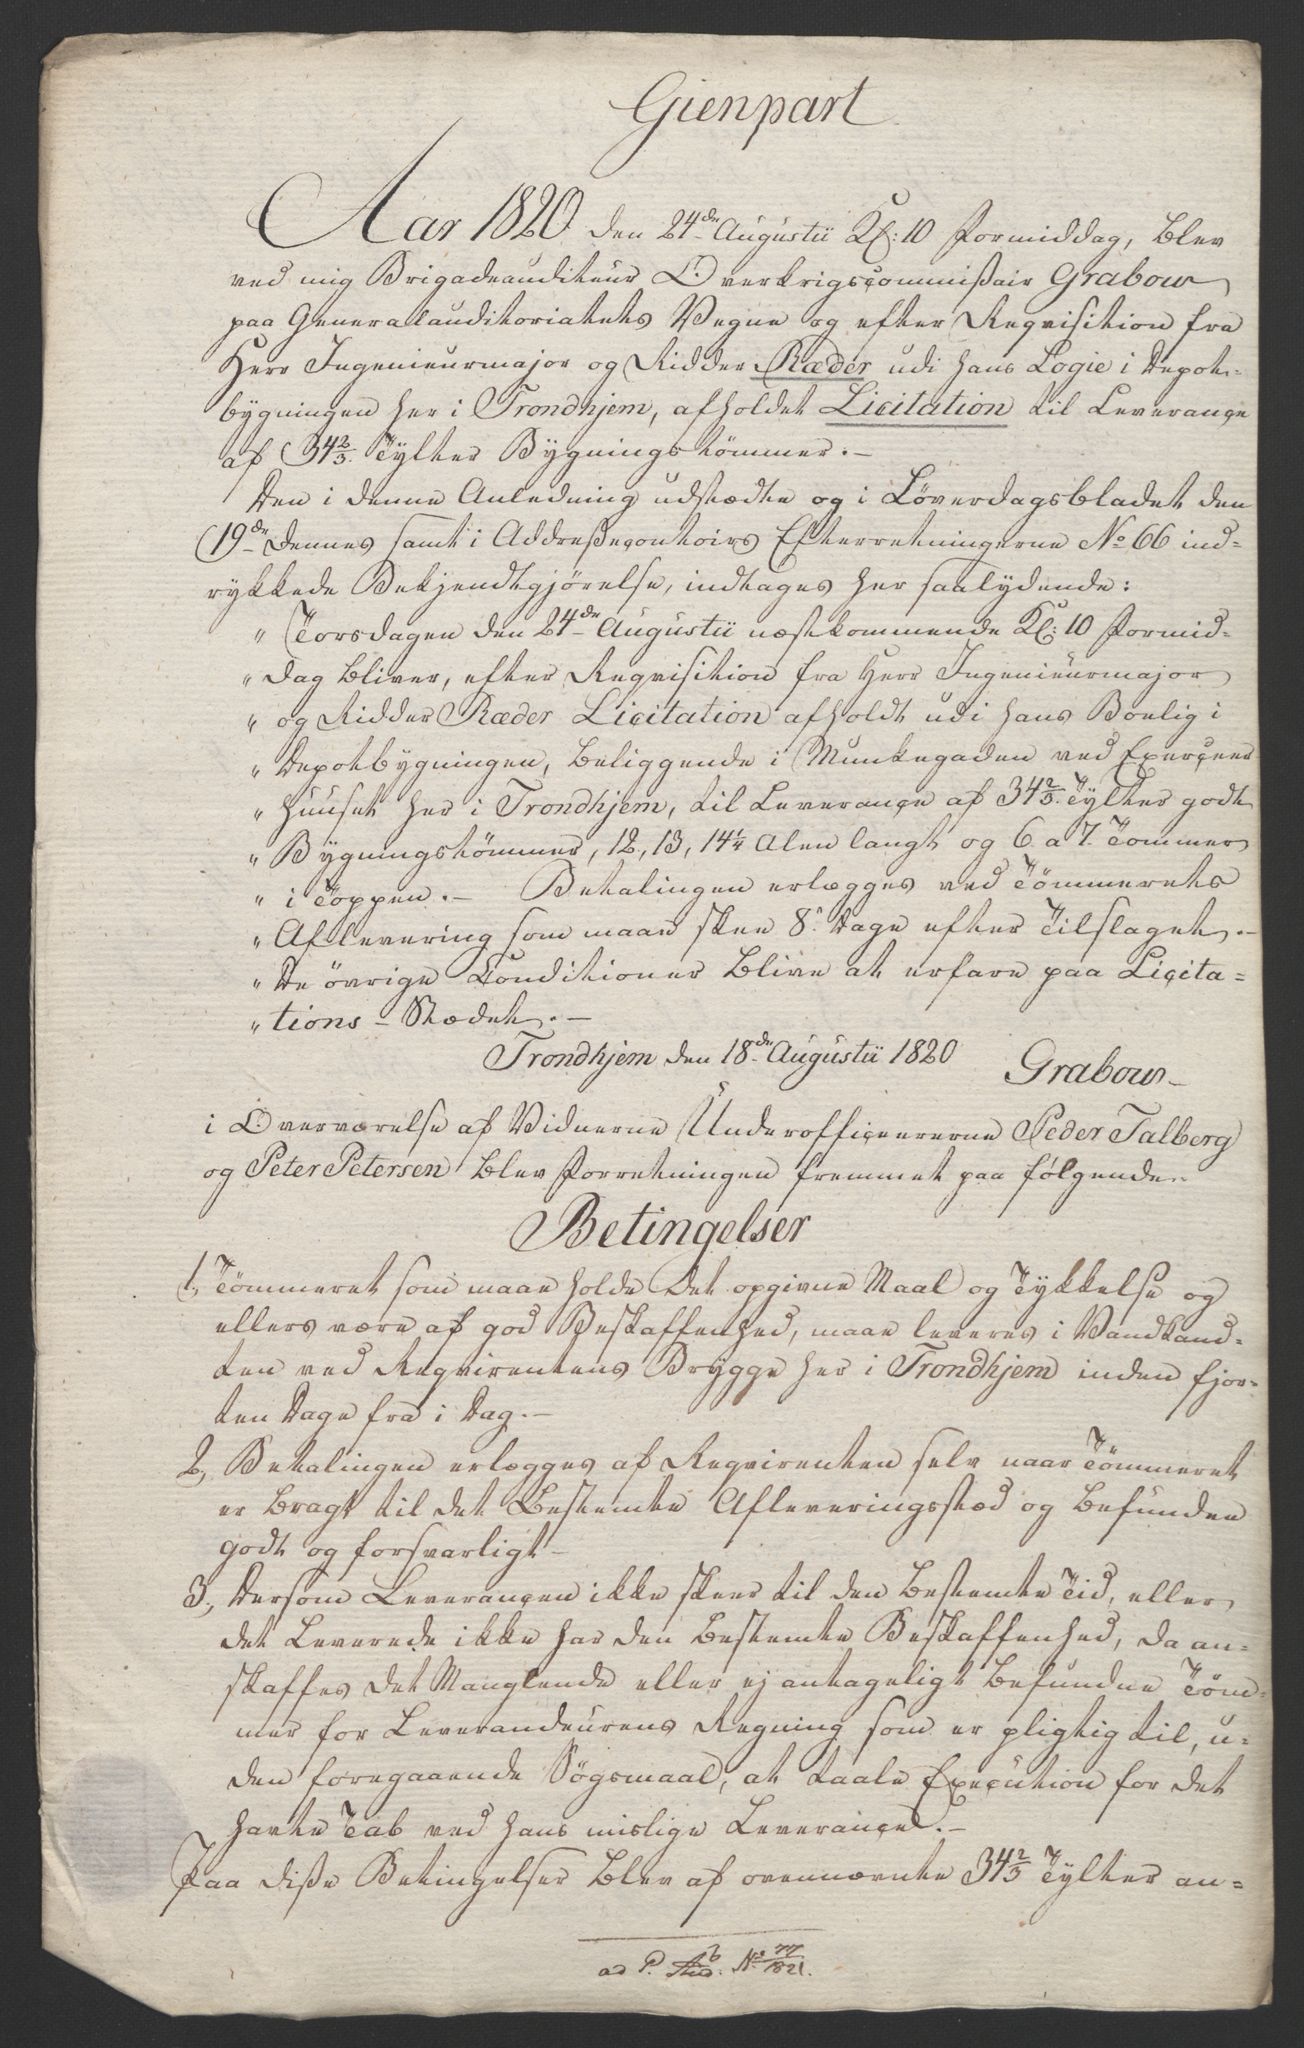 Gienpart
Aar 1820 den 24de Augustii Kl: 10 Formiddag, blev
ved mig Brigadeauditeur Overkrigscommißair Grabow
paa Generalauditoriatets Vegne og efter Reqvisition fra
Herr Ingenieurmajor og Ridder Ræder udi hans Logie i Depot-
bygningen her i Trondhjem, afholdet Licitation til Leverance
af 34 2/3. Tylter Bygningstømmer.-
Den i denne Anledning udstædte og i Løverdagsbladet den
19de dennes samt i Addreßecontoirs Efterretningerne No 66 ind-
rykkede Bekjendtgjørelse, indtages her saalydende:
" Torsdagen den 24de Augustii næstkommende Kl: 10 Formid-
" dag bliver, efter Reqvisition fra Herr Ingenieurmajor
" og Ridder Ræder Licitation afholdt udi hans Boelig i
" Depotbygningen, beliggende i Munkegaden ved Exerceer
" huuset her i Trondhjem, til Leverance af 34 2/3. Tylter godt
" Bygningstømmer, 12, 13, 14 1/4 Alen langt og 6 a 7 Tommer
" i Toppen.- Betalingen erlægges ved Tømmerets
" Aflevering som maae skee 8te Dage efter Tilslaget.-
" De øvrige Conditioner blive at erfare paa Licita-
" tions-Stædet.-
Trondhjem den 18de Augustii 1820 Grabow-
i Overværelse af Vidnerne Underofficeererne Peder Talberg
og Peter Petersen blev Forretningen fremmet paa følgende
Betingelser
1, Tømmeret som maae holde det opgivne Maal og Tykkelse og
ellers være af god Beskaffenhed, maae leveres i Vandkand-
ten ved Reqvirentens Brygge her i Trondhjem inden fjor-
ten Dage fra i Dag.-
2, Betalingen erlægges af Reqvirenten selv naar Tømmeret
er bragt til det bestemte Afleveringsstæd og befunden
godt og forsvarligt-
3, Dersom Leverancen ikke skeer til den bestemte Tid, eller
det Leverede ikke har den bestemte Beskaffenhed, da an-
skaffes det Manglende eller ej antageligt befundne Tøm-
mer for Leverandeurens Regning som er pligtig til, u-
den foregaaende Søgsmaal, at taale Execution for det
havte Tab ved hans mislige Leverance.-
Paa diße Betingelser blev af ovennævnte 34 2/3 Tylter an-
ad P. No 77/1821.